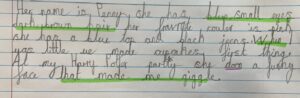 Her name is Penney she has blue small eyes
dark brown hair her favorite color is pink
she has a blue top and black jeans
was little we made cupcakes just
At my Harry Potter party she did a funny
face that made me giggle.